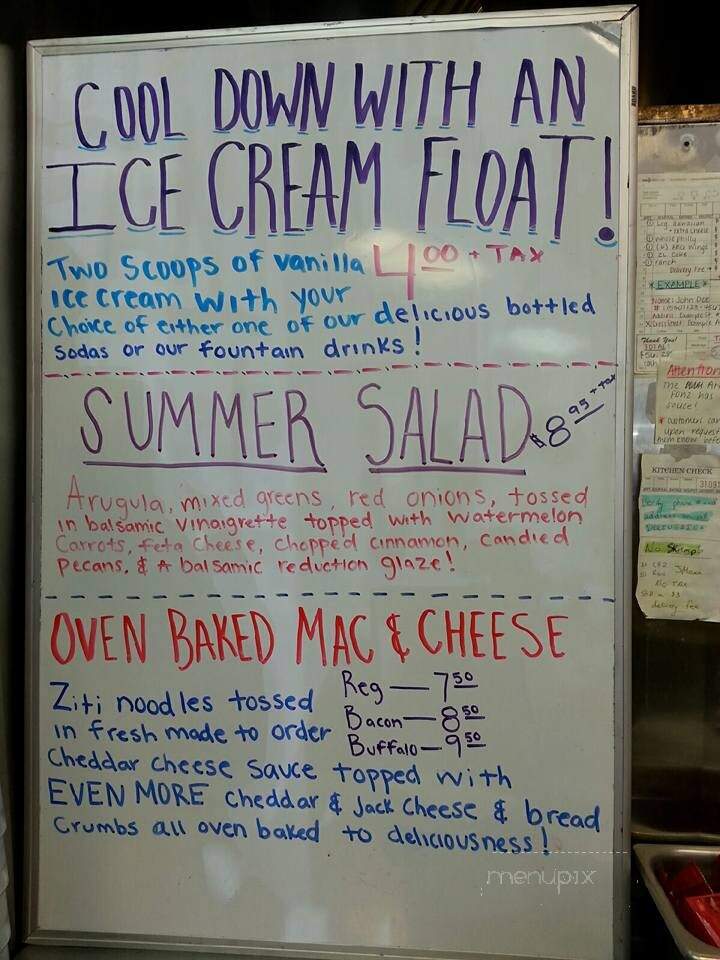 COOL DOWN WITH AN
ICE CREAM FLOAT!
Two Scoops of vanilla 4.00 + TAX
ice cream with your
Choice of either one of our delicious bottled
sodas or our fountain drinks!
SUMMER SALAD $8.95 + tax
Arugula, mixed greens, red onions, tossed
in balsamic vinaigrette topped with watermelon
Carrots, feta cheese, chopped cinnamon, candied
pecans, & A balsamic reduction glaze!
OVEN BAKED MAC & CHEESE
Ziti noodles tossed
in fresh made to order
Reg — 7.50
Bacon — 8.50
Buffalo — 9.50
Cheddar cheese sauce topped with
EVEN MORE cheddar & Jack Cheese & bread
crumbs all oven baked to deliciousness!
menupix
* EXAMPLE *
Name: John Doe
Thank You!
TOTAL:
Attention
* customers can
upon request
KITCHEN CHECK
No Shrimp
No TAX
delivery fee